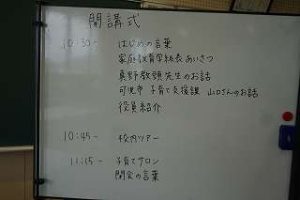 開講式
10:30~ はじめの言葉
家庭教育学級長 あいさつ
真野教頭先生のお話
可児市 子育て支援課 山口さんのお話
役員紹介
10:45~ 校内ツアー
11:15~ 子育てサロン
閉会の言葉